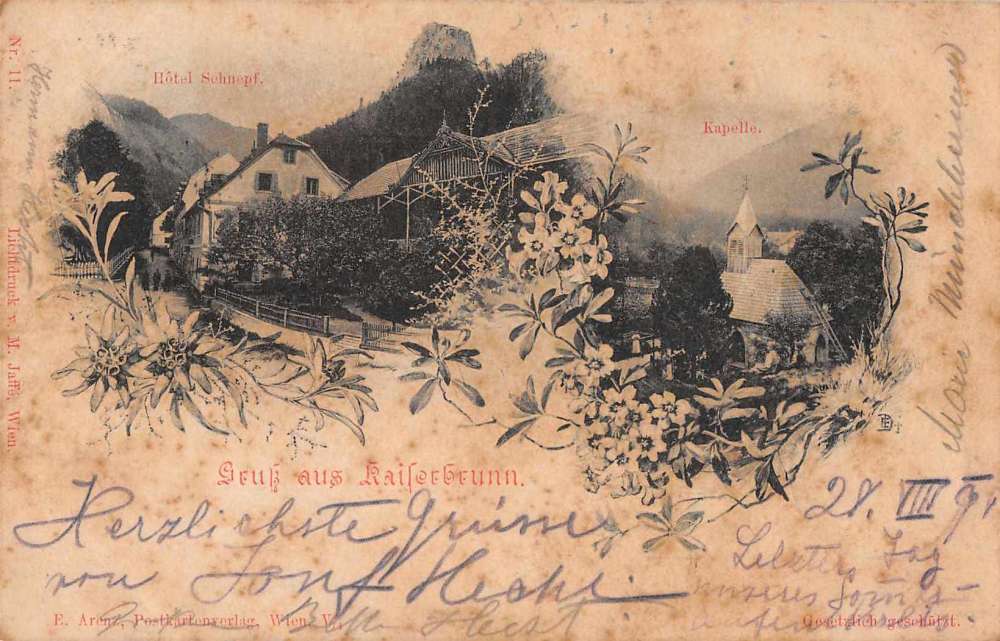 Hôtel Schnepf.
Kapelle.
Nr. 11.
Lichtdruck v. M. Jaffé, Wien
Marie
Gruß aus Kaiserbrunn.
28. VIII 9
Herzlichste Grüsse
von Hecht
Letzter Tag
unseres
E. Arenz, Postkartenverlag, Wien V.
Hecht
Gesetzlich geschützt.